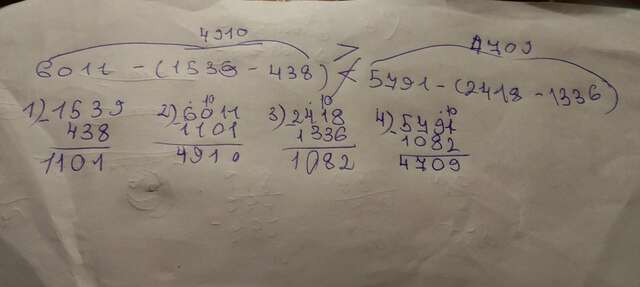 4910 4709
>
6011 - (1539 - 438) < 5791 - (2418 - 1336)
1) 1539 2) 6011 3) 2418 4) 5791
- 438 - 1101 - 1336 - 1082
1101 4910 1082 4709